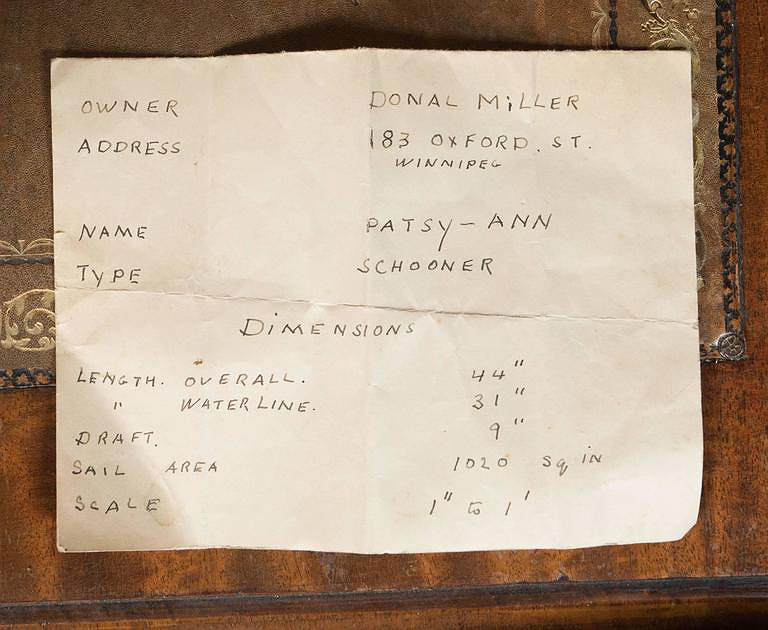 OWNER DONAL MILLER
ADDRESS 183 OXFORD. ST.
WINNIPEG
NAME PATSY-ANN
TYPE SCHOONER
DIMENSIONS
LENGTH. OVERALL. 44"
" WATERLINE. 31"
DRAFT. 9"
SAIL AREA 1020 sq IN
SCALE 1" to 1'